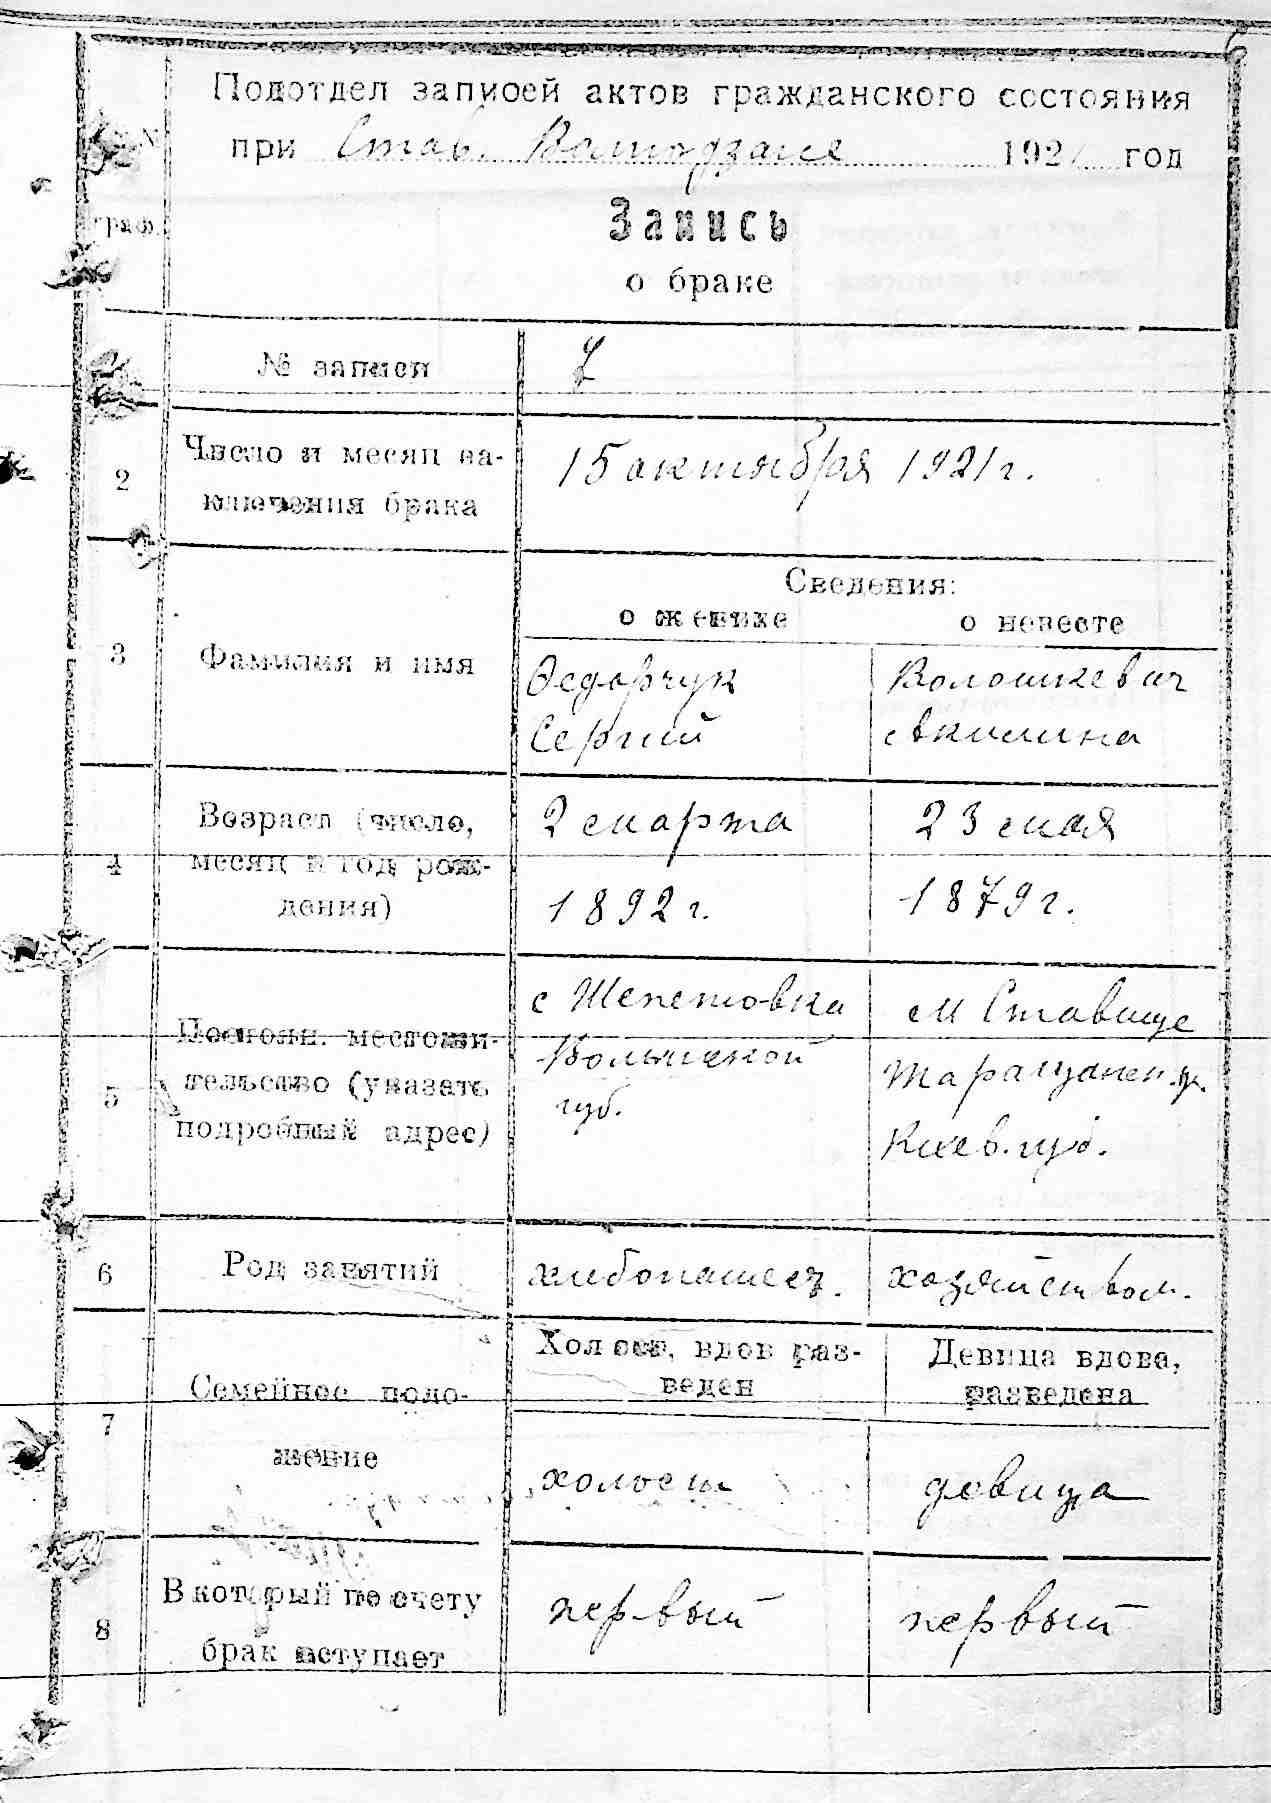 Подотдел записей актов гражданского состояния
при Став. 192 год
№
граф.
Запись
о браке
№ записи
2 Число и месяц за-
ключения брака
15 октября 1921 г.
Сведения:
о женихе о невесте
3 Фамилия и имя
Федорчук Волошкевич
Сергий Акилина
4 Возраст (число,
месяц и год рож-
дения)
2 марта 23 мая
1892 г. 1879 г.
5 Постоян. местожи-
тельство (указать
подробный адрес)
с Шепетовка м Ставище
Волынской Таращанск. у.
губ. Киев. губ.
6 Род занятий хлебопашец. хозяйством.
7 Семейное поло-
жение
Холост, вдов раз-
веден
Девица вдова,
разведена
холост девица
8 В который по счету
брак вступает
первый первый